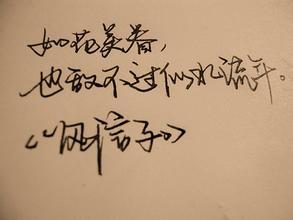 如花美眷，
也敌不过似水流年。
《风信子。》